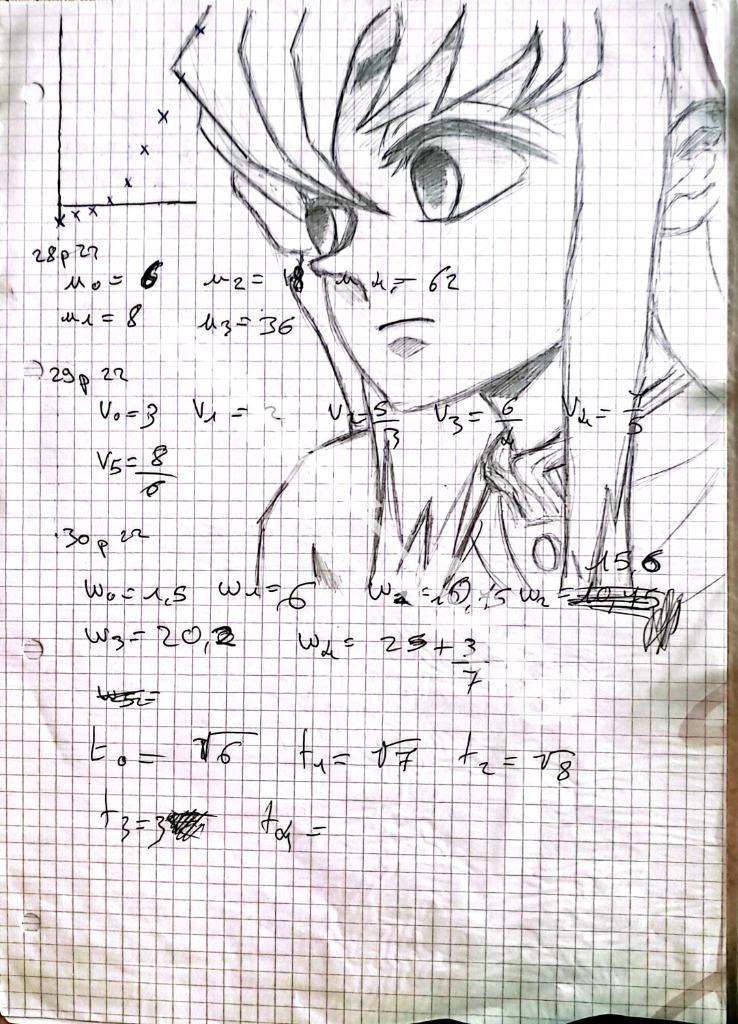 28p22
u₀= 6 u₂= 18 u₄= 62
u₁= 8 u₃= 36
29p22
V₀=3 V₁ = 2 V₂=5/3 V₃= 6/4 V₄= 7/5
V₅= 8/6
30p22
15,6
w₀= 1,5 w₁= 6 w₂ w₂=
w₃= 20,2 w₄= 25+3/7
t₀= √6 t₁= √7 t₂= √8
t₃=3 t₄ =